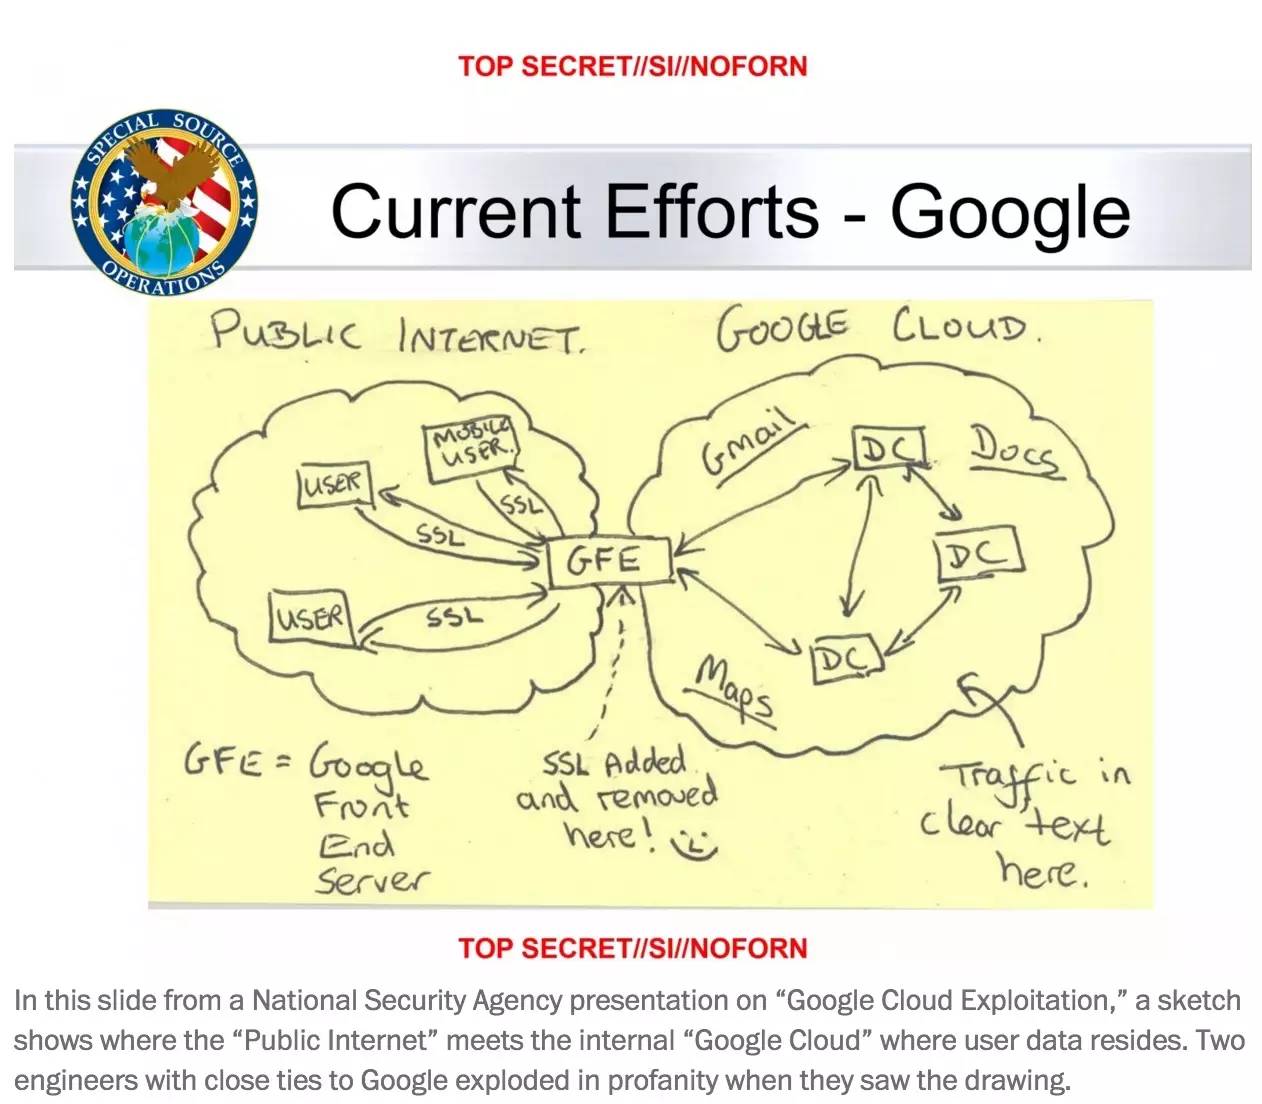 TOP SECRET//SI//NOFORN
SPECIAL SOURCE
OPERATIONS
Current Efforts - Google
PUBLIC INTERNET.
GOOGLE CLOUD.
MOBILE
USER.
USER
SSL
SSL
USER
SSL
GFE
Gmail
DC
Docs
DC
DC
Maps
GFE = Google
Front
End
Server
SSL Added
and removed
here!
Traffic in
clear text
here.
TOP SECRET//SI//NOFORN
In this slide from a National Security Agency presentation on “Google Cloud Exploitation,” a sketch
shows where the “Public Internet” meets the internal “Google Cloud” where user data resides. Two
engineers with close ties to Google exploded in profanity when they saw the drawing.